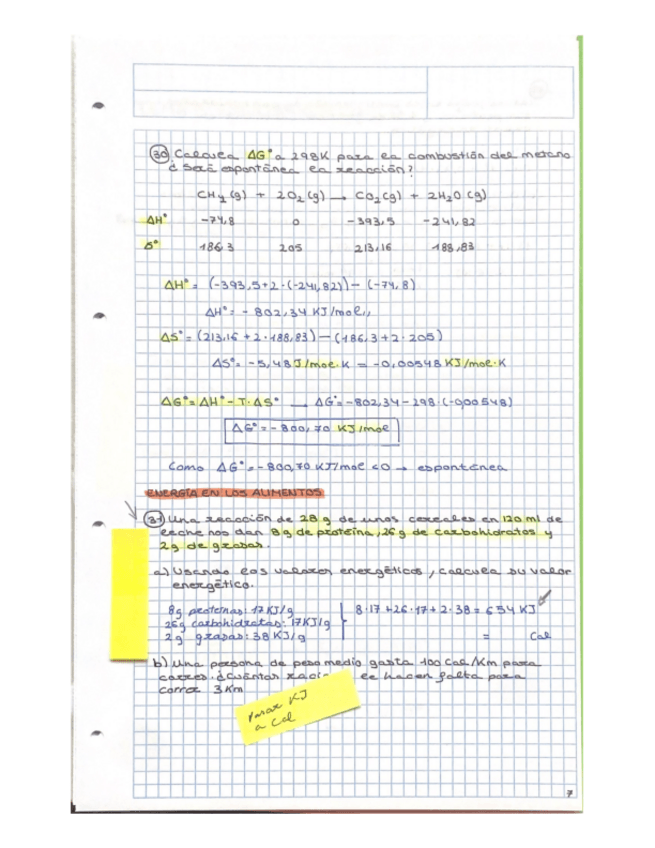 30 Calcula ΔG° a 298K para la combustión del metano
¿ Será espontánea la reacción?
CH4 (g) + 2O2 (g) → CO2 (g) + 2H2O (g)
ΔH° -74,8 0 -393,5 -241,82
S° 186,3 205 213,16 188,83
ΔH° = (-393,5+2·(-241,82)) - (-74,8)
ΔH° = - 802,34 KJ/mol,,
ΔS° = (213,16 + 2·188,83) - (186,3+2·205)
ΔS° = -5,48 J/mol·K = -0,00548 KJ/mol·K
ΔG° = ΔH° - T·ΔS° → ΔG° = -802,34 - 298·(-0,00548)
ΔG° = - 800,70 KJ/mol
Como ΔG° = - 800,70 KJ/mol <0 → espontánea
ENERGÍA EN LOS ALIMENTOS
31 Una reacción de 28 g de unos cereales en 120 ml de
leche nos dan 8 g de proteína, 26 g de carbohidratos y
2 g de grasas.
a) Usando los valores energéticos, calcula su valor
energético.
8g proteínas: 17 KJ/g 8·17 + 26·17 + 2·38 = 654 KJ
26g carbohidratos: 17KJ/g
2 g grasas: 38 KJ/g = Cal
b) Una persona de peso medio gasta 100 Cal/Km para
correr. ¿Cuántas le hacen falta para
correr 3 Km
pasar KJ
a Cal
7